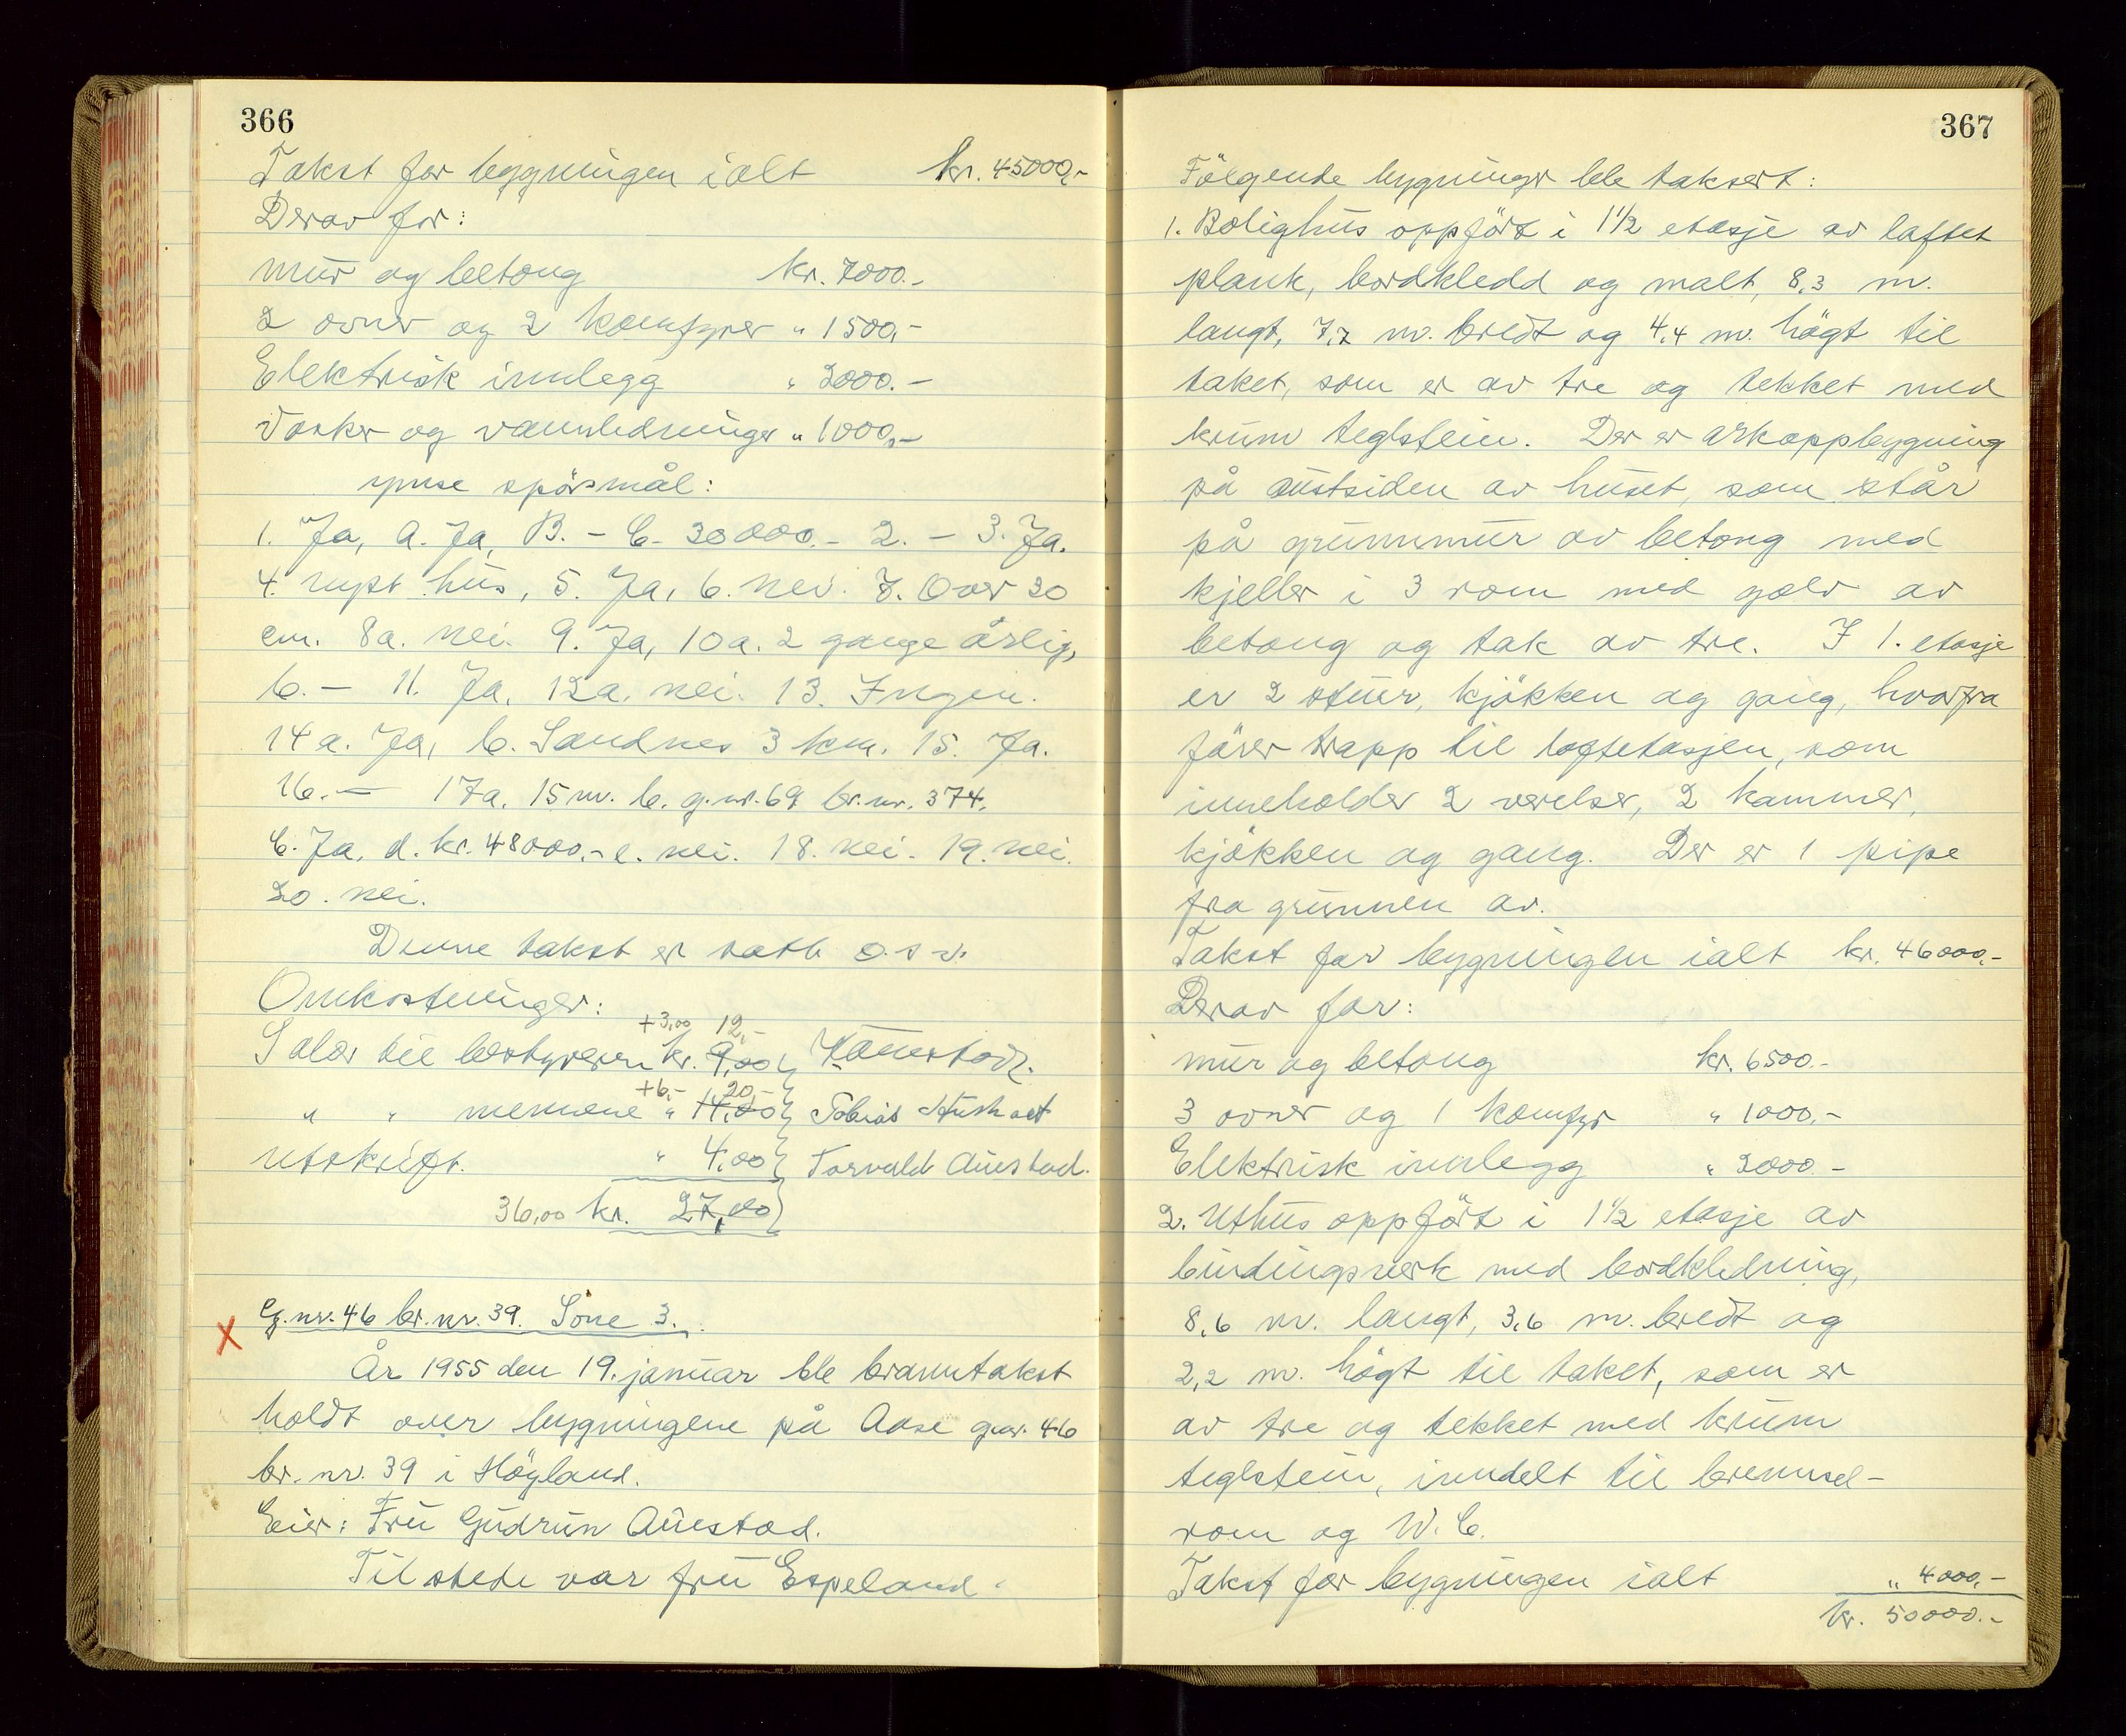 366
Takst for bygningen ialt kr. 45000,-
Derav for:
mur og betong kr. 7000.-
2 ovner og 2 komfyrer " 1500,-
Elektrisk innlegg " 2000.-
Vasker og vannledninger " 1000,-
ymse spörsmål:
1. Ja, a. Ja, B. - C. 30000.- 2. - 3. Ja.
4. nytt hus, 5. Ja, 6. nei. 7. Over 20
cm. 8a. nei. 9. Ja, 10a. 2 gange årlig,
b. - 11. Ja, 12a. nei. 13. Ingen.
14a. Ja, b. Sandnes 3 km. 15. Ja.
16. - 17a. 15 m. b. g.nr. 69 br.nr. 374.
C. Ja, d. kr. 48000.- e. nei. 18. nei. 19. nei.
20. nei.
Denne takst er satt o.s.v.
Omkostninger:
+3,00 12,-
Salær til bestyreren kr. 9,00
+6,- 20,-
" " mennene " 14,00 Tobias
Utskrift. " 4,00 Torvald Auestad.
36,00 kr. 27,00
X G.nr. 46 br.nr. 39. Sone 3.
År 1955 den 19. januar ble branntakst
holdt over bygningene på Aase gnr. 46
br. nr. 39 i Höyland.
Eier: Fru Gudrun Auestad.
Til stede var fru Espeland.
367
Fölgende bygninger ble taksert:
1. Bolighus oppfört i 1 1/2 etasje av laftet
plank, bordkledd og malt, 8,3 m.
langt, 7,7 m. bredt og 4,4 m. högt til
taket, som er av tre og tekket med
krum teglstein. Der er arkoppbygning
på austsiden av huset, som står
på grunnmur av betong med
kjeller i 3 rom med golv av
betong og tak av tre. I 1. etasje
er 2 stuer, kjökken og gang, hvorfra
förer trapp til loftetasjen, som
inneholder 2 verelser, 2 kammer,
kjökken og gang. Der er 1 pipe
fra grunnen av.
Takst for bygningen ialt kr. 46000.-
Derav for:
mur og betong kr. 6500.-
3 ovner og 1 komfyr " 1000.-
Elektrisk innlegg " 2000.-
2. Uthus oppfört i 1 1/2 etasje av
bindingsverk med bordkledning,
8,6 m. langt, 3,6 m. bredt og
2,2 m. högt til taket, som er
av tre og tekket med krum
teglstein, inndelt til brensel-
rom og W.C.
Takst for bygningen ialt " 4000,-
kr. 50000.-